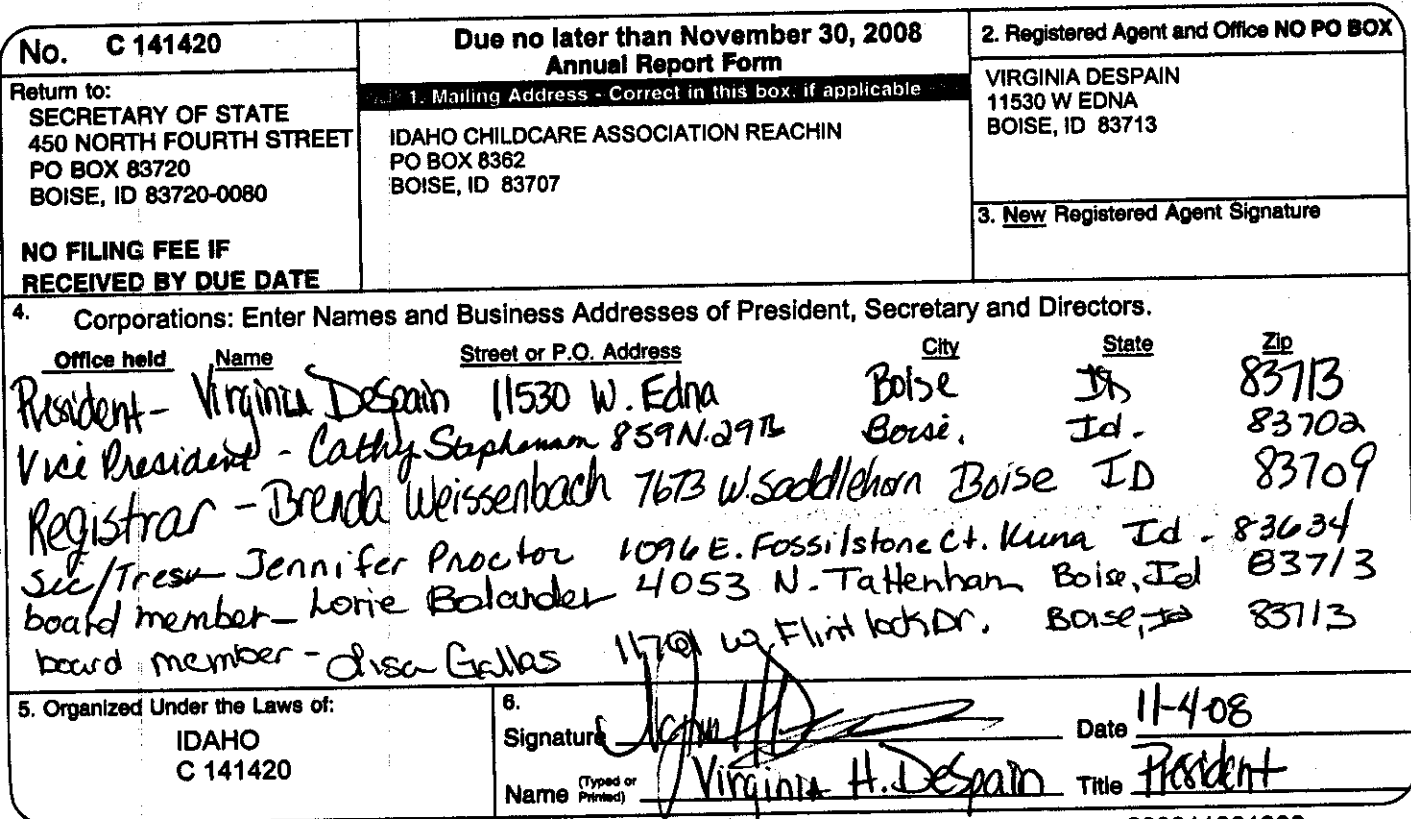 No. C 141420
Return to:
SECRETARY OF STATE
450 NORTH FOURTH STREET
PO BOX 83720
BOISE, ID 83720-0080
NO FILING FEE IF
RECEIVED BY DUE DATE
Due no later than November 30, 2008
Annual Report Form
1. Mailing Address - Correct in this box, if applicable
IDAHO CHILDCARE ASSOCIATION REACHIN
PO BOX 8362
BOISE, ID 83707
2. Registered Agent and Office NO PO BOX
VIRGINIA DESPAIN
11530 W EDNA
BOISE, ID 83713
3. New Registered Agent Signature
4. Corporations: Enter Names and Business Addresses of President, Secretary and Directors.
Office held Name Street or P.O. Address City State Zip
President - Virginia DeSpain 11530 W. Edna Boise ID 83713
Vice President - Cathy Stephenson 859 N. 29th Boise, Id. 83702
Registrar - Brenda Weissenbach 7673 W. Saddlehorn Boise ID 83709
Sec/Tresu Jennifer Proctor 1096 E. Fossilstone Ct. Kuna Id - 83634
board member - Lorie Bolander 4053 N. Tattenham Boise, Id 83713
board member - Lisa Gallas W. Flintlock Dr. Boise, Id 83713
5. Organized Under the Laws of:
IDAHO
C 141420
6.
Signature Date 11-4-08
Name (Typed or Printed) Virginia H. DeSpain Title President